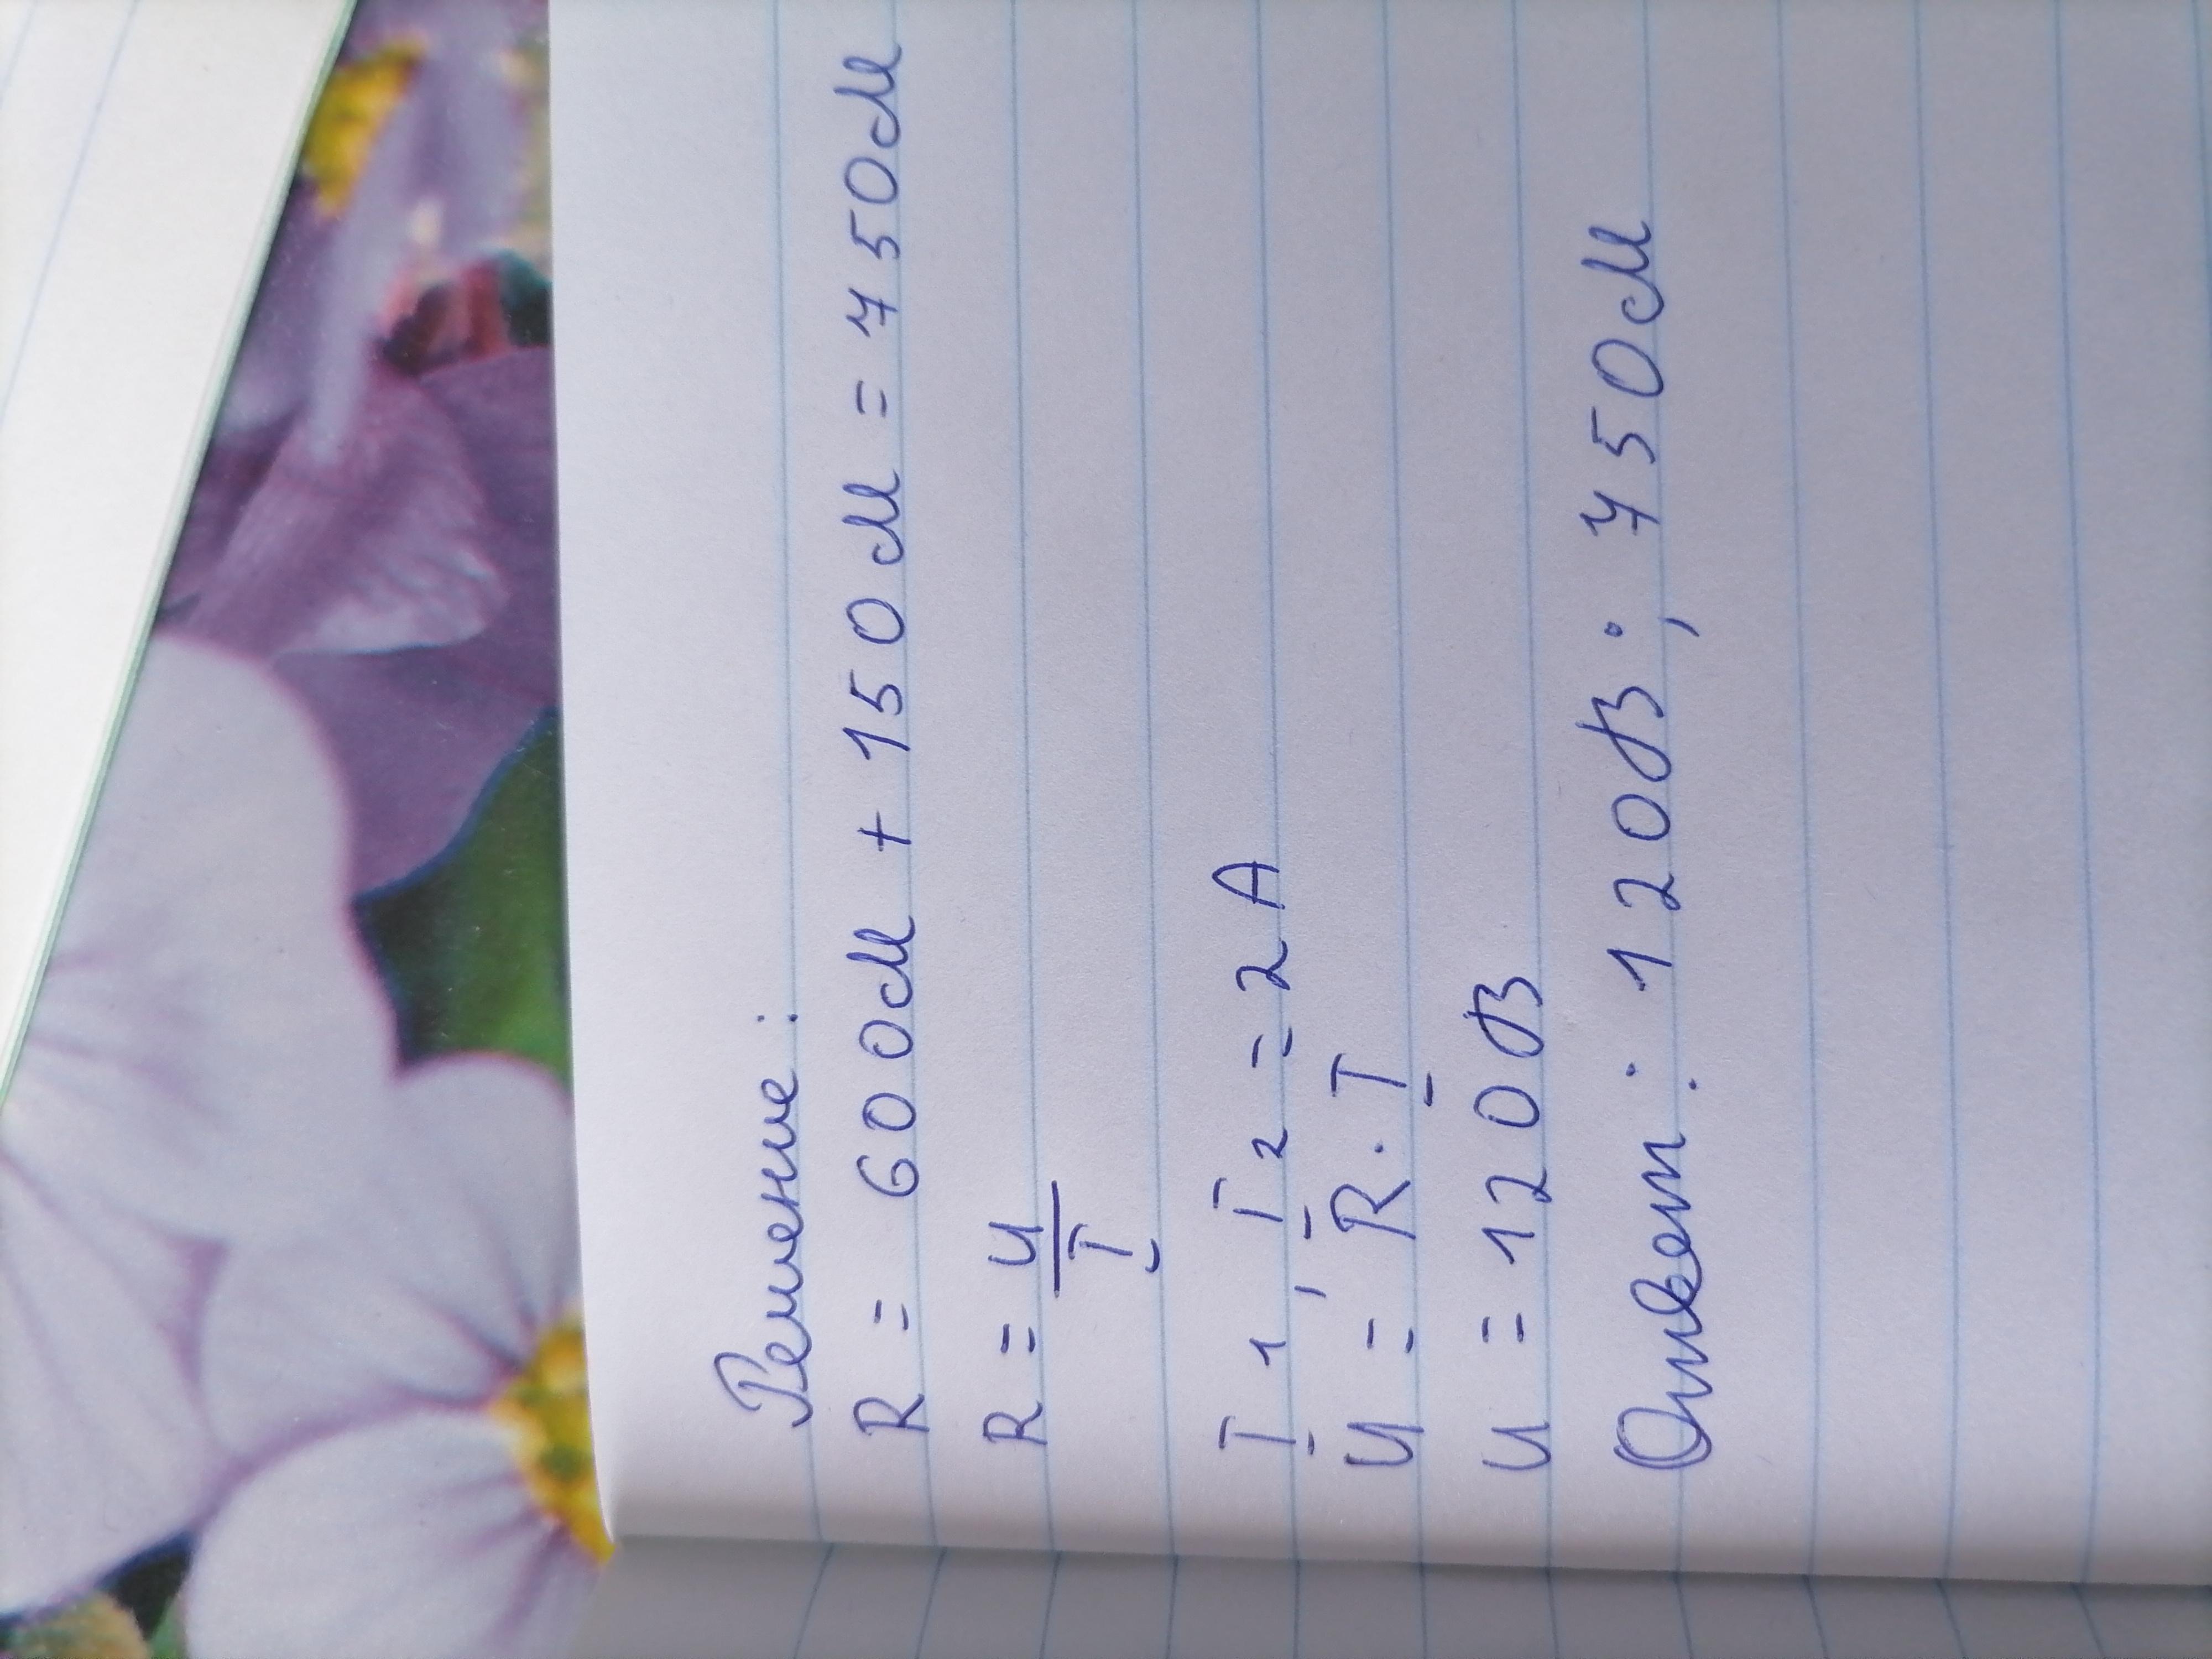 Решение:
R = 60 Ом + 15 Ом = 75 Ом
R = U/I
I1, I2 = 2 A
U = R · I
U = 120 В
Ответ: 120 В; 75 Ом